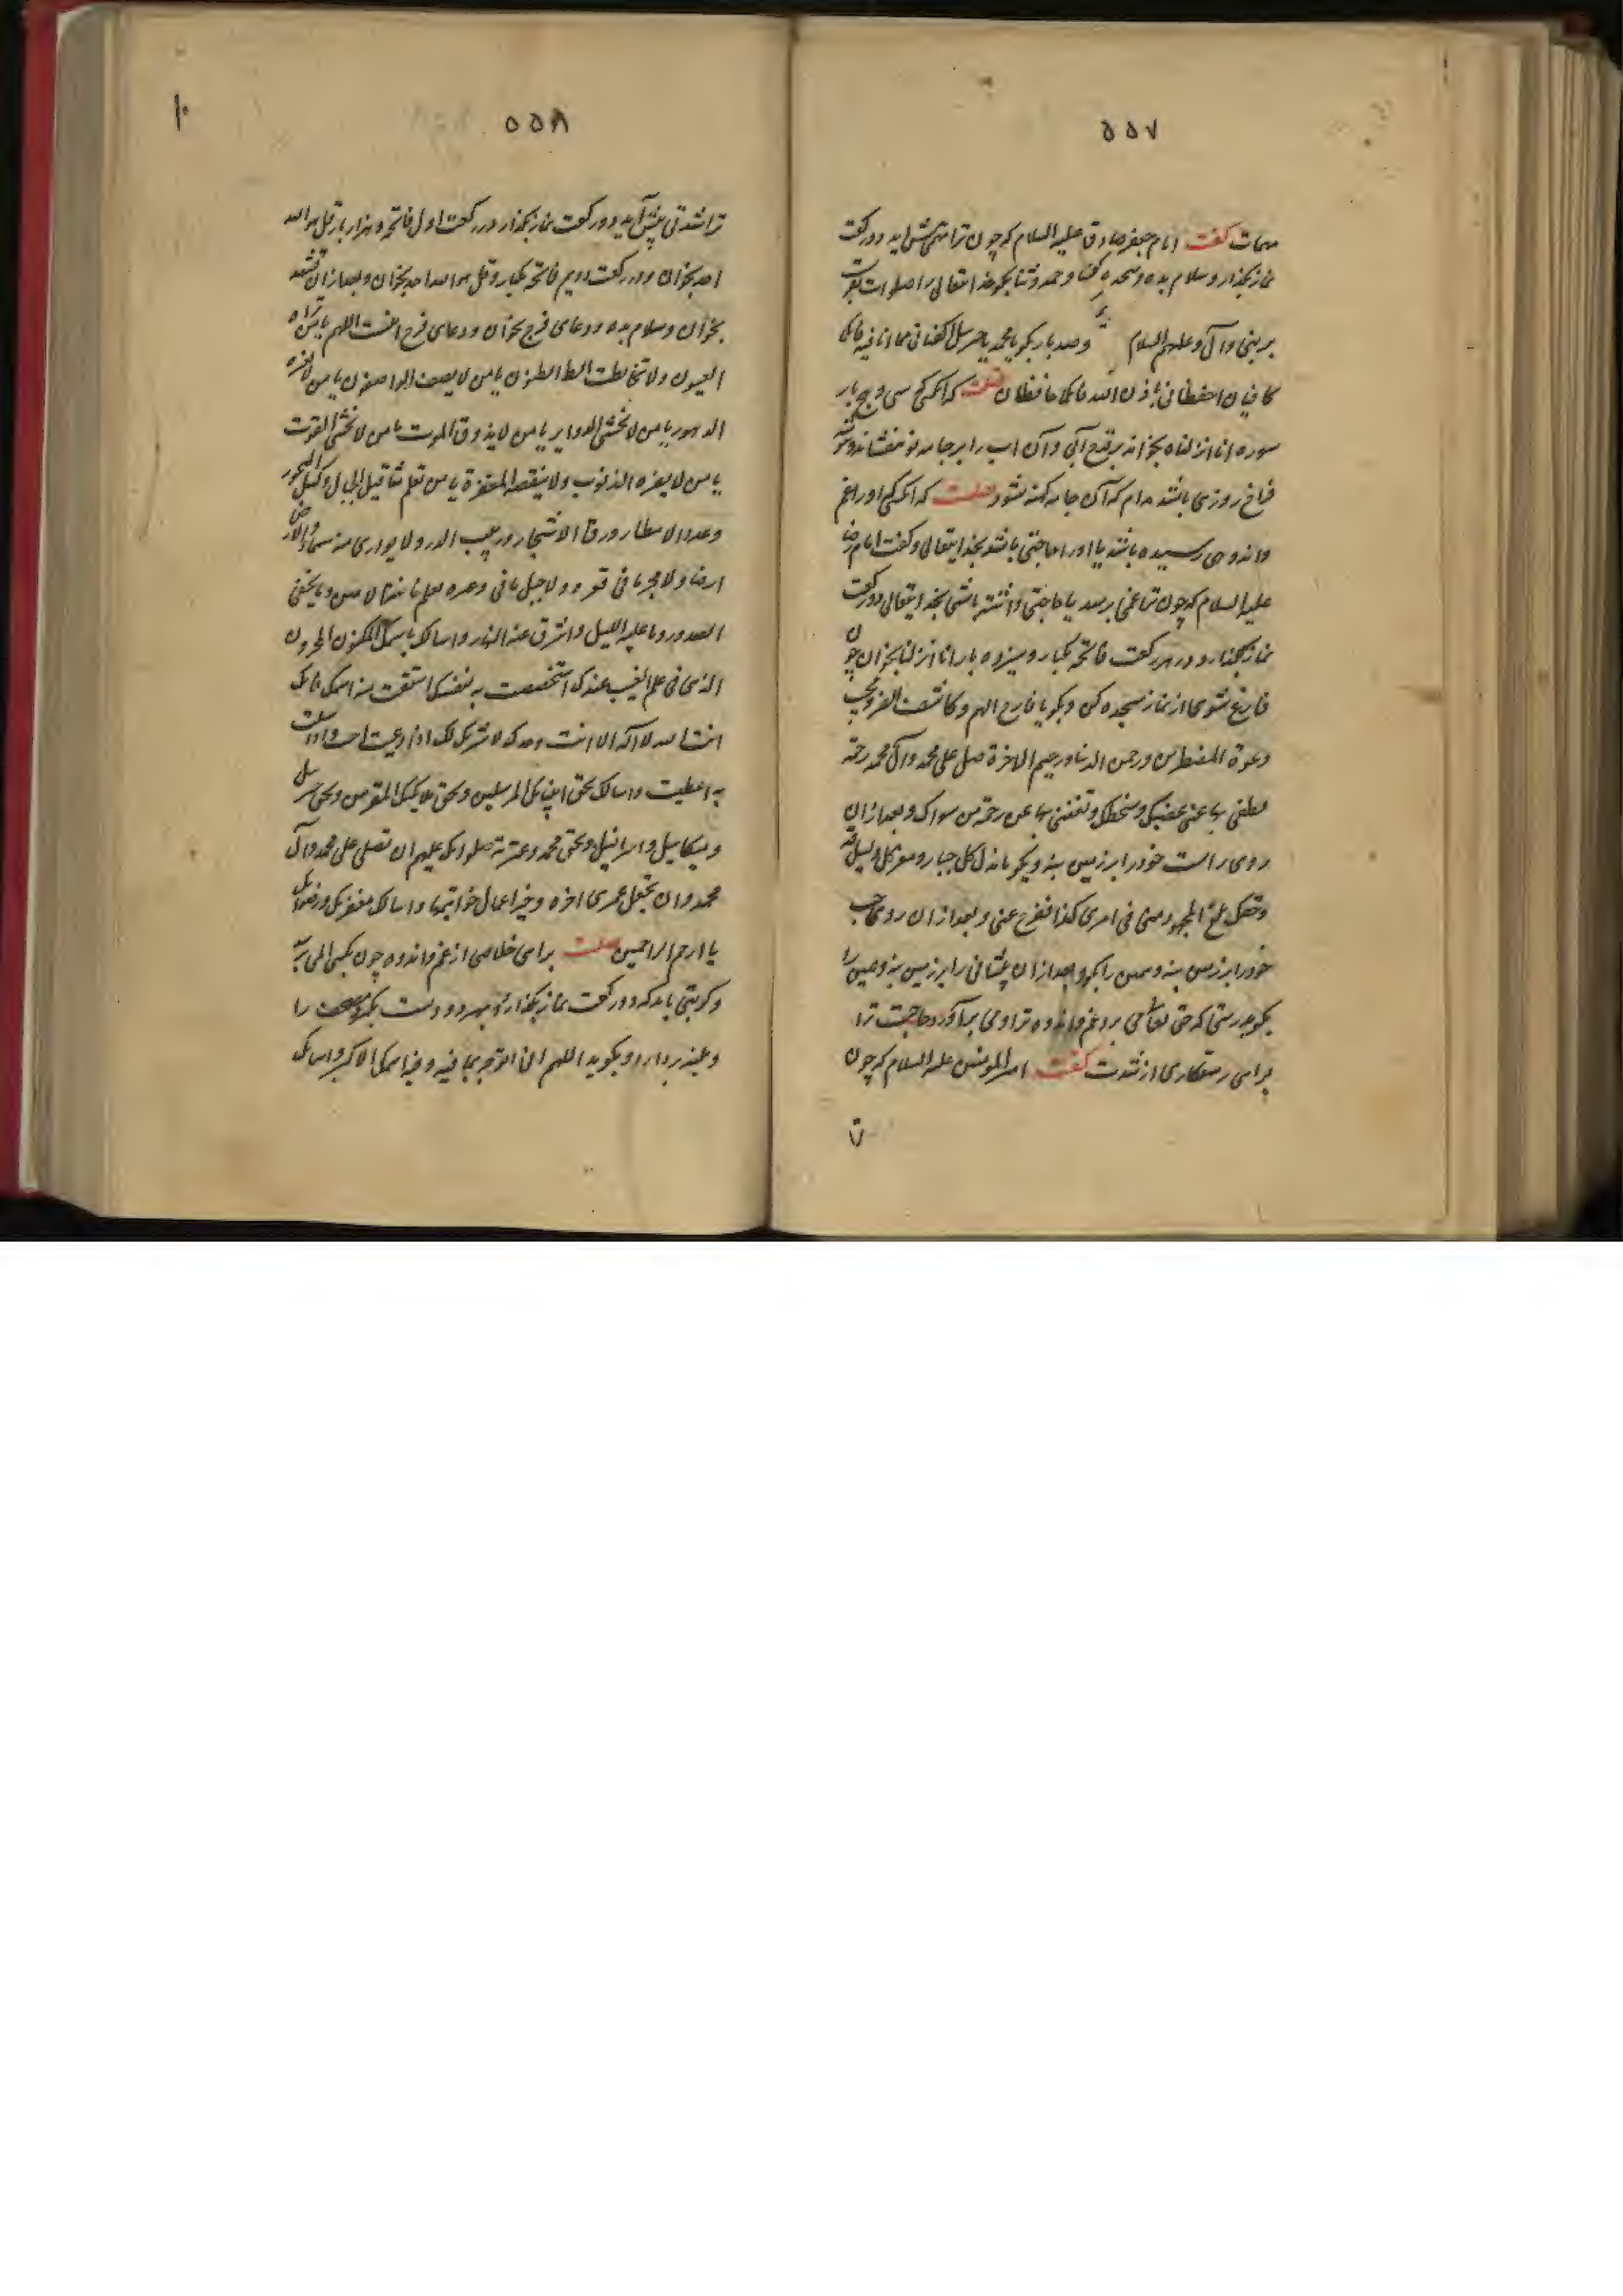 ۵۵۷
مهمات گفت امام جعفر صادق علیه السلام که چون ترا مهمی پیش اید دو رکعت
نماز بکذار و سلام بده و سجده کن و حمد و ثنا بکو خدایتعالی را صلوات بفرست
بر نبی و آل او علیهم السلام و صد بار بکو یا محمد یا جبرئیل اکفیانی مما انا فیه فانکما
کافیان احفظانی باذن الله فانکما حافظان که انکه کسی سی و پنج بار
سوره انا انزلناه بخواند بر قدح آبی و آن اب را بر جامه نو بیفشاند
فراخ روزی باشد مدام که آن جامه کهنه نشود که انکه کسی او را غم
و اندوهی رسیده باشد یا او را حاجتی باشد بخدایتعالی و گفت امام رضا
علیه السلام که چون ترا غمی برسد یا حاجتی داشته باشی بخدایتعالی دو رکعت
نماز بکذار و در هر رکعت فاتحه یکبار و سیزده بار انا انزلنا بخوان چون
فارغ شوی از نماز سجده کن و بکو یا فارج الهم و کاشف الغم و مجیب
دعوة المضطرین و رحمن الدنیا و رحیم الاخرة صل علی محمد و ال محمد رحمة
تطفی بها عنی غضبک و سخطک و تغنینی بها عن رحمة من سواک و بعد از ان
روی راست خود را بر زمین بنه و بکو یا مذل کل جبار و معز کل ذلیل قد
وحقک بلغ المجهود منی فی امری کذا ففرج عنی و بعد از ان روی چپ
خود را بر زمین بنه و همین را بکو و بعد از ان پیشانی را بر زمین بنه و همین را
بکو بدرستی که حق تعالی می برد غم و اندوه ترا و می برآورد حاجت ترا
برای رستکاری از شدت گفت امیر المومنین علیه السلام که چون
۵۵۸
ترا شدتی پیش آید دو رکعت نماز بکذار در رکعت اول فاتحه و هزار بار قل هو الله
احد بخوان و در رکعت دویم فاتحه یکبار و قل هو الله احد بخوان و بعد از ان تشهد
بخوان و سلام بده و دعای فرج بخوان و دعای فرج اللهم یا من لا تراه
العیون و لا تخالطه الظنون یا من لا یصفه الواصفون یا من لا تغیره
الدهور یا من لا یخشی الدوایر یا من لا یذوق الموت یا من لا یخشی الفوت
یا من لا یضره الذنوب و لا ینقصه المغفرة یا من یعلم مثاقیل الجبال و کیل البحور
و عدد الامطار و ورق الاشجار و دبیب الذر و لا یواری منه سماء
ارضا و لا بحر ما فی قعره و لا جبل ما فی وعره یعلم خائنة الاعین و ما یخفی
الصدور و ما علیه اللیل و اشرق عنه النهار و اسالک باسمک المکنون المخزون
الذی فی علم الغیب عندک اختصصت به نفسک اشتققت منه اسمک فانک
انت الله لا اله الا انت وحدک لا شریک لک اذا دعیت اجبت و اذا سئلت
به اعطیت و اسالک بحق انبیائک المرسلین و بحق ملایکتک المقربین و بحق جبرئیل
و میکاییل و اسرافیل و بحق محمد و عترته صلواتک علیهم ان تصلی علی محمد و آل
محمد و ان تجعل خیر عمری اخره و خیر اعمالی خواتیمها و اسالک مغفرتک و رضوانک
یا ارحم الراحمین برای خلاصی از غم و اندوه چون بکسی المی
و کربتی باید که دو رکعت نماز بکذارد و بهر دو دست بکیرد مصحف را
و بلند بردارد و بکوید اللهم انی اتوجه بما فیه و فیه اسمک الاکبر و اسالک